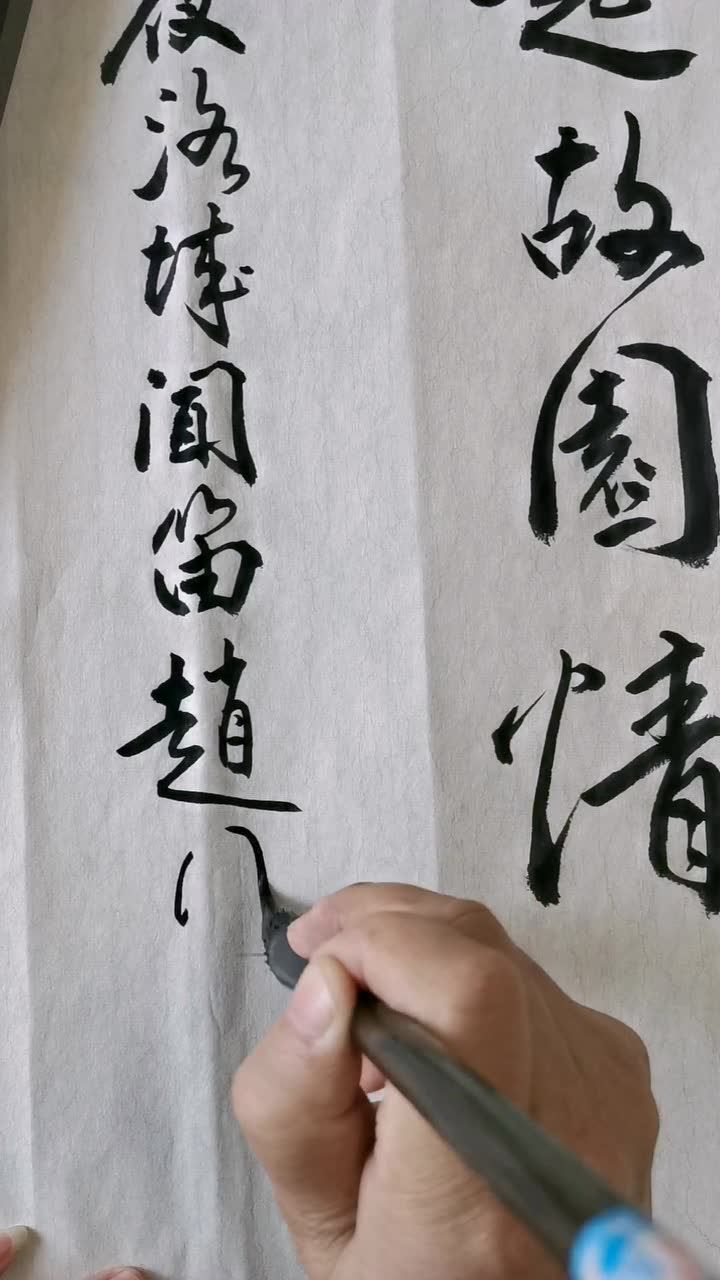 起故園情
夜洛城聞笛趙